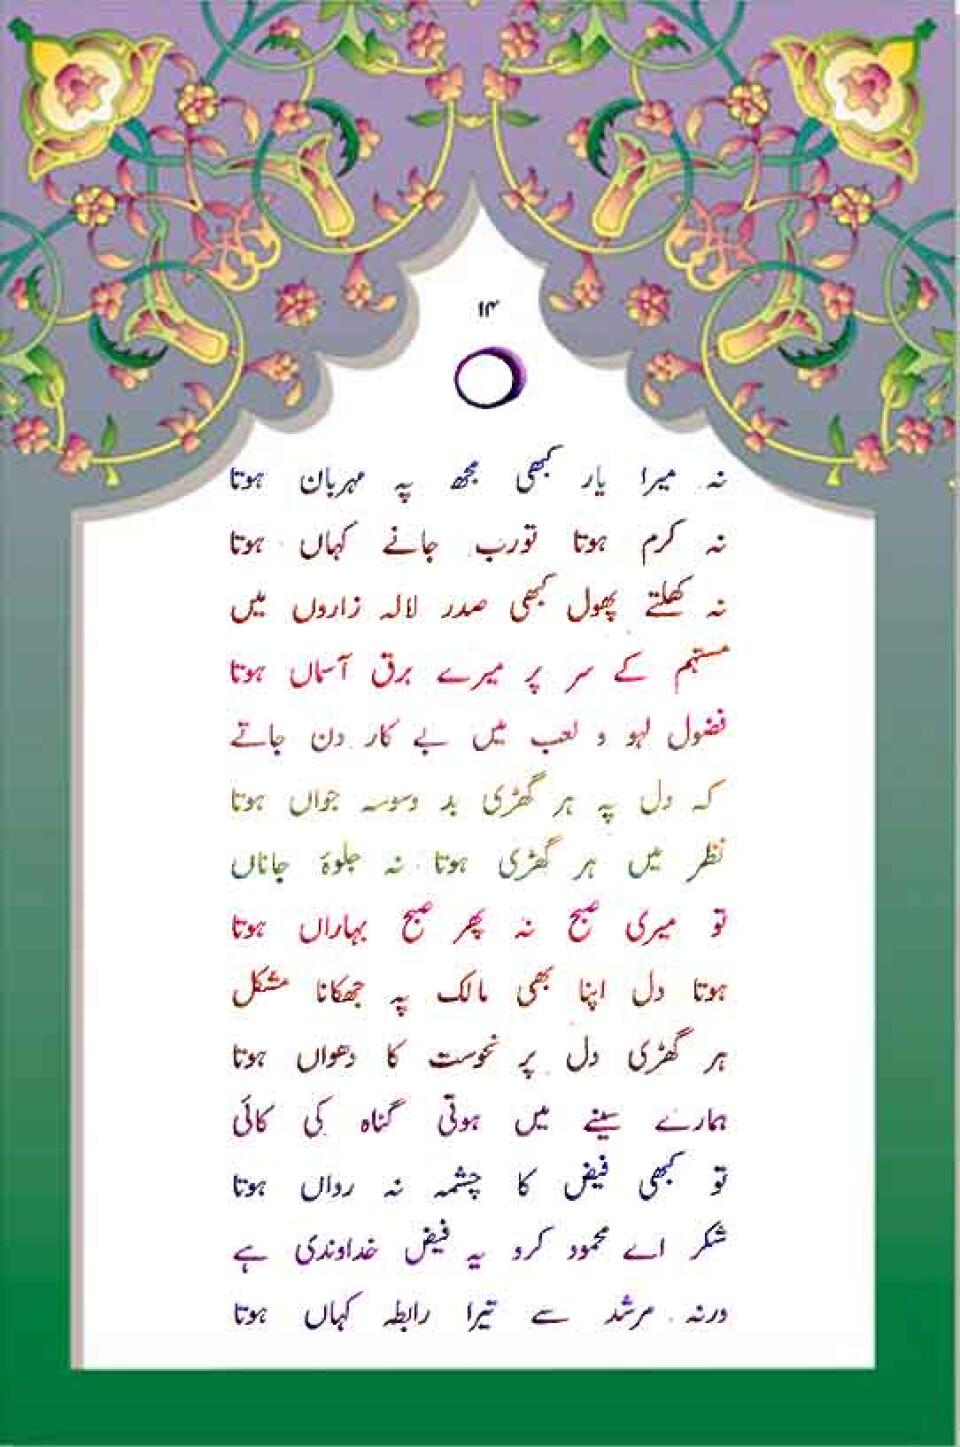 ۱۴
نہ میرا یار کبھی مجھ پہ مہربان ہوتا
نہ کرم ہوتا تورب جانے کہاں ہوتا
نہ کھلتے پھول کبھی صدر لالہ زاروں میں
ستہم کے سر پر میرے برق آسماں ہوتا
فضول لہو و لعب میں بے کار دن جاتے
کہ دل پہ ہر گھڑی بد وسوسہ جواں ہوتا
نظر میں ہر گھڑی ہوتا نہ جلوۂ جاناں
تو میری صبح نہ پھر صبح بہاراں ہوتا
ہوتا دل اپنا بھی مالک پہ جھکانا مشکل
ہر گھڑی دل پر نحوست کا دھواں ہوتا
ہمارے سینے میں ہوتی گناہ کی کائی
تو کبھی فیض کا چشمہ نہ رواں ہوتا
شکر اے محمود کرو یہ فیض خداوندی ہے
ورنہ مرشد سے تیرا رابطہ کہاں ہوتا